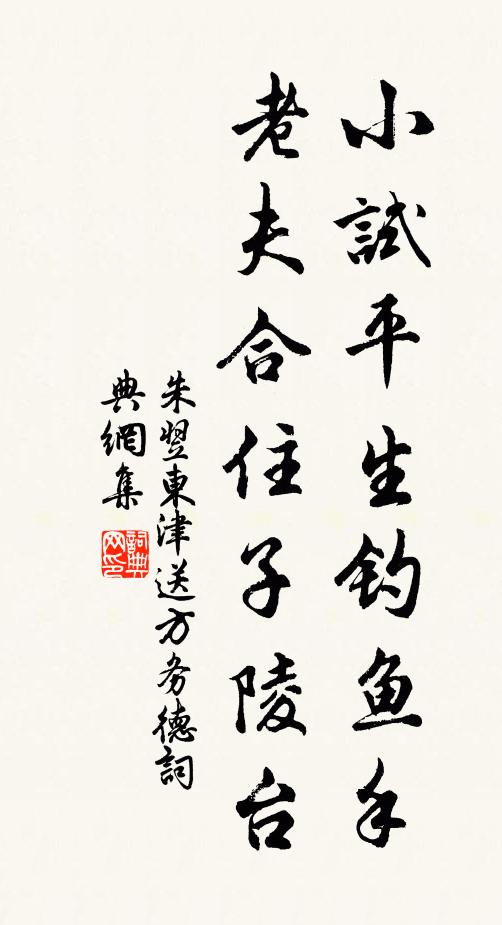 小試平生钓鱼手
老夫合住子陵台
朱翌東津送方务德詞
典網集
詞典网印